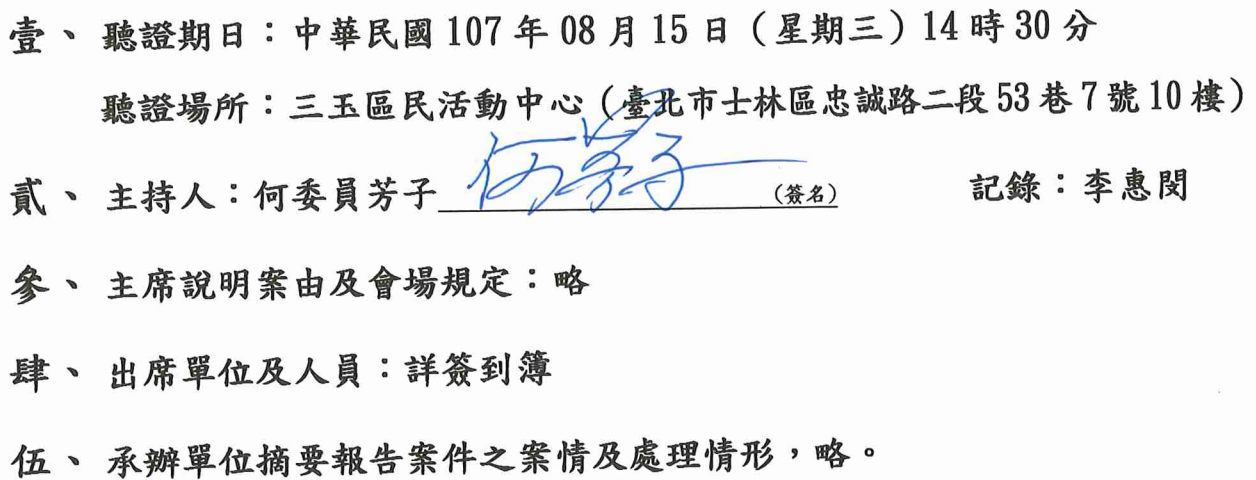 壹、聽證期日：中華民國 107 年 08 月 15 日（星期三）14 時 30 分
聽證場所：三玉區民活動中心（臺北市士林區忠誠路二段 53 巷 7 號 10 樓）
貳、主持人：何委員芳子 何芳子 (簽名) 記錄：李惠閔
參、主席說明案由及會場規定：略
肆、出席單位及人員：詳簽到簿
伍、承辦單位摘要報告案件之案情及處理情形，略。